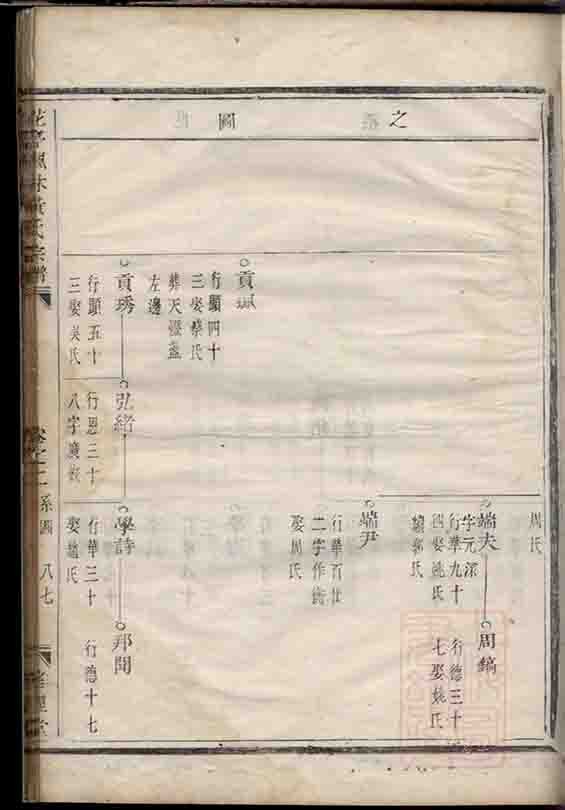 之
圖
周氏
端夫
字元深
行華九十
四娶姚氏
周鎬
行德三十
七娶姚氏
端尹
行華百廿
二字作銜
娶周氏
貢珮
行顯四十
三娶蔡氏
葬天燈盞
左邊
貢琇
行顯五十
三娶吳氏
弘緒
行恩三十
八字廣
學詩
行華三十
娶趙氏
邦聞
行德十七
黃氏宗譜
系圖
八七